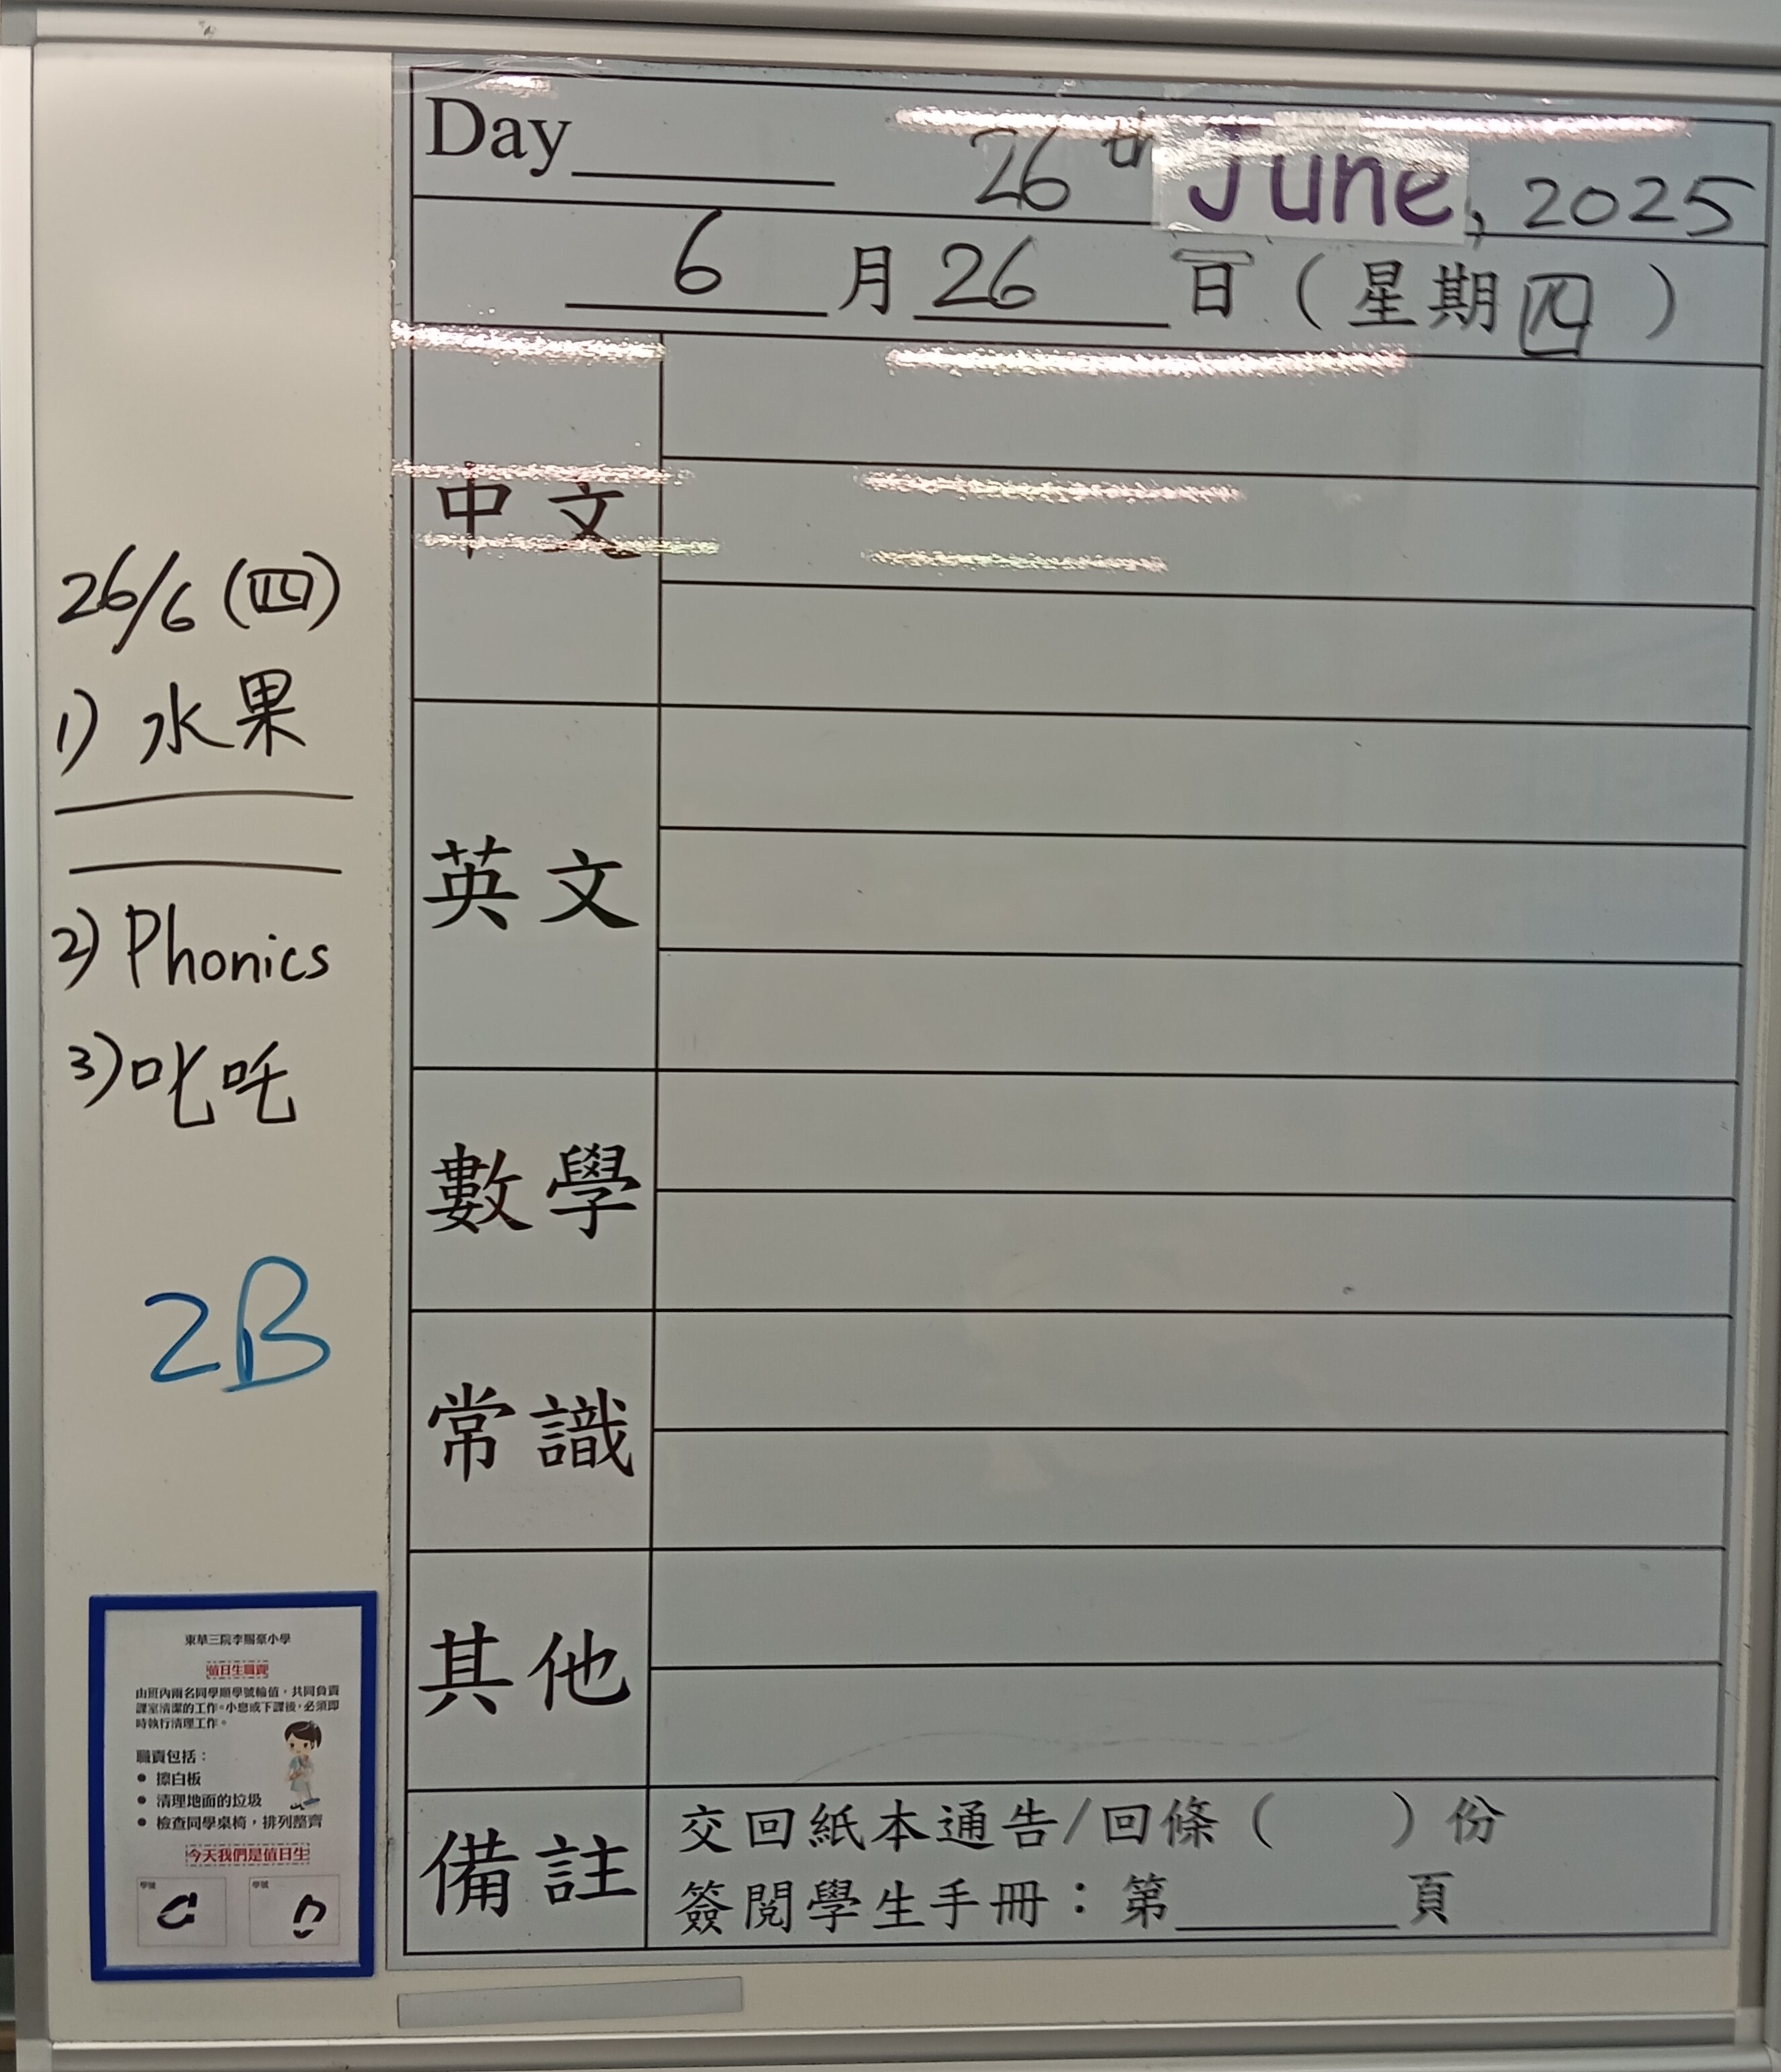 Day______ 26th June, 2025
6月26日（星期四）
中文
英文
數學
常識
其他
備註
交回紙本通告/回條（　　）份
簽閱學生手冊：第______頁
26/6 (四)
1) 水果
2) Phonics
3) 叱吒
2B
東華三院李賜豪小學
值日生職責
由班內兩名同學順學號輪值，共同負責
課室清潔的工作。小息或下課後，必須即
時執行清理工作。
職責包括：
● 擦白板
● 清理地面的垃圾
● 檢查同學桌椅，排列整齊
今天我們是值日生
學號
學號